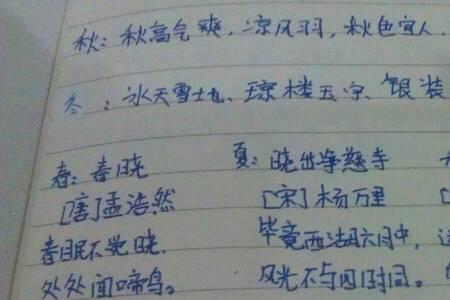 秋：秋高气爽，凉风习习，秋色宜人.
冬：冰天雪地、琼楼玉宇、银装
春：春晓 夏：晓出净慈寺
[唐]孟浩然 [宋]杨万里 [
春眠不觉晓. 毕竟西湖六月中，
处处闻啼鸟。 风光不与四时同。